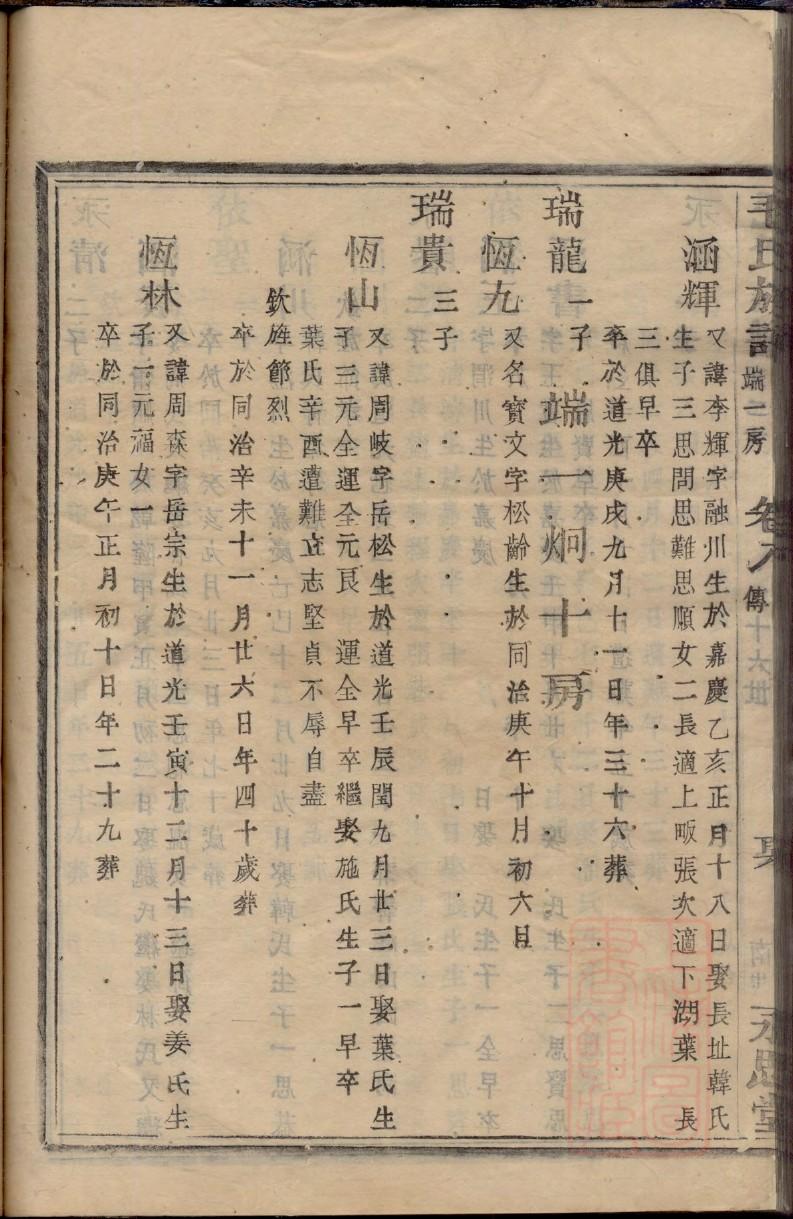 毛氏族譜 端一房 卷八 傳十六世 永思堂
涵輝 又諱李輝字融川生於嘉慶乙亥正月十八日娶長址韓氏
生子三思問思難思順女二長適上畈張次適下湖葉 長
三俱早卒
卒於道光庚戌九月十一日年三十六葬
瑞龍 一子 端一炯十房
恆九 又名寶文字松齡生於同治庚午十月初六日
瑞貴 三子
恆山 又諱周岐字岳松生於道光壬辰閏九月廿三日娶葉氏生
子三元全運全元良 運全早卒繼娶施氏生子一早卒
葉氏辛酉遭難立志堅貞不辱自盡
欽旌節烈
卒於同治辛未十一月廿六日年四十歲葬
恆林 又諱周森字岳宗生於道光壬寅十二月十三日娶姜氏生
子一元福女一
卒於同治庚午正月初十日年二十九葬